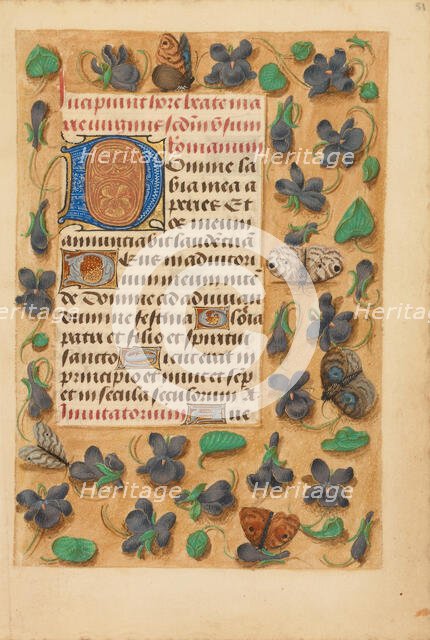 51
Incipiunt hore beate ma
rie virginis secdm vsum
Romanum
Domine la
bia mea a
peries Et
os meum
annunciabit laudem tua
Deus in adiutori
um meum intende
Domine ad adiuuan
dum me festina Gloria
patri et filio et spiritui
sancto Sicut erat in
principio et nunc et sep
et in secula seculorum
Inuitatorium Aue
Heritage
Heritage
Heritage
Heritage
Images
Images
Heritage
Heritage
Heritage